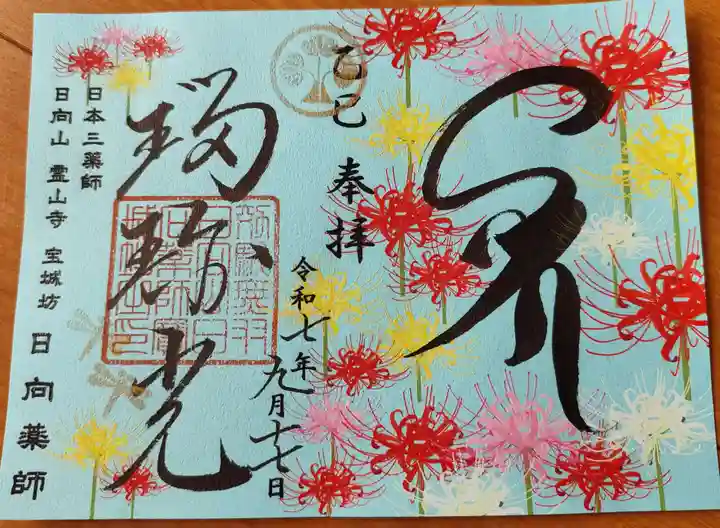 乙巳 奉拝
令和七年
九月十七日
瑠璃光
日本三薬師
日向山 霊山寺 宝城坊 日向薬師